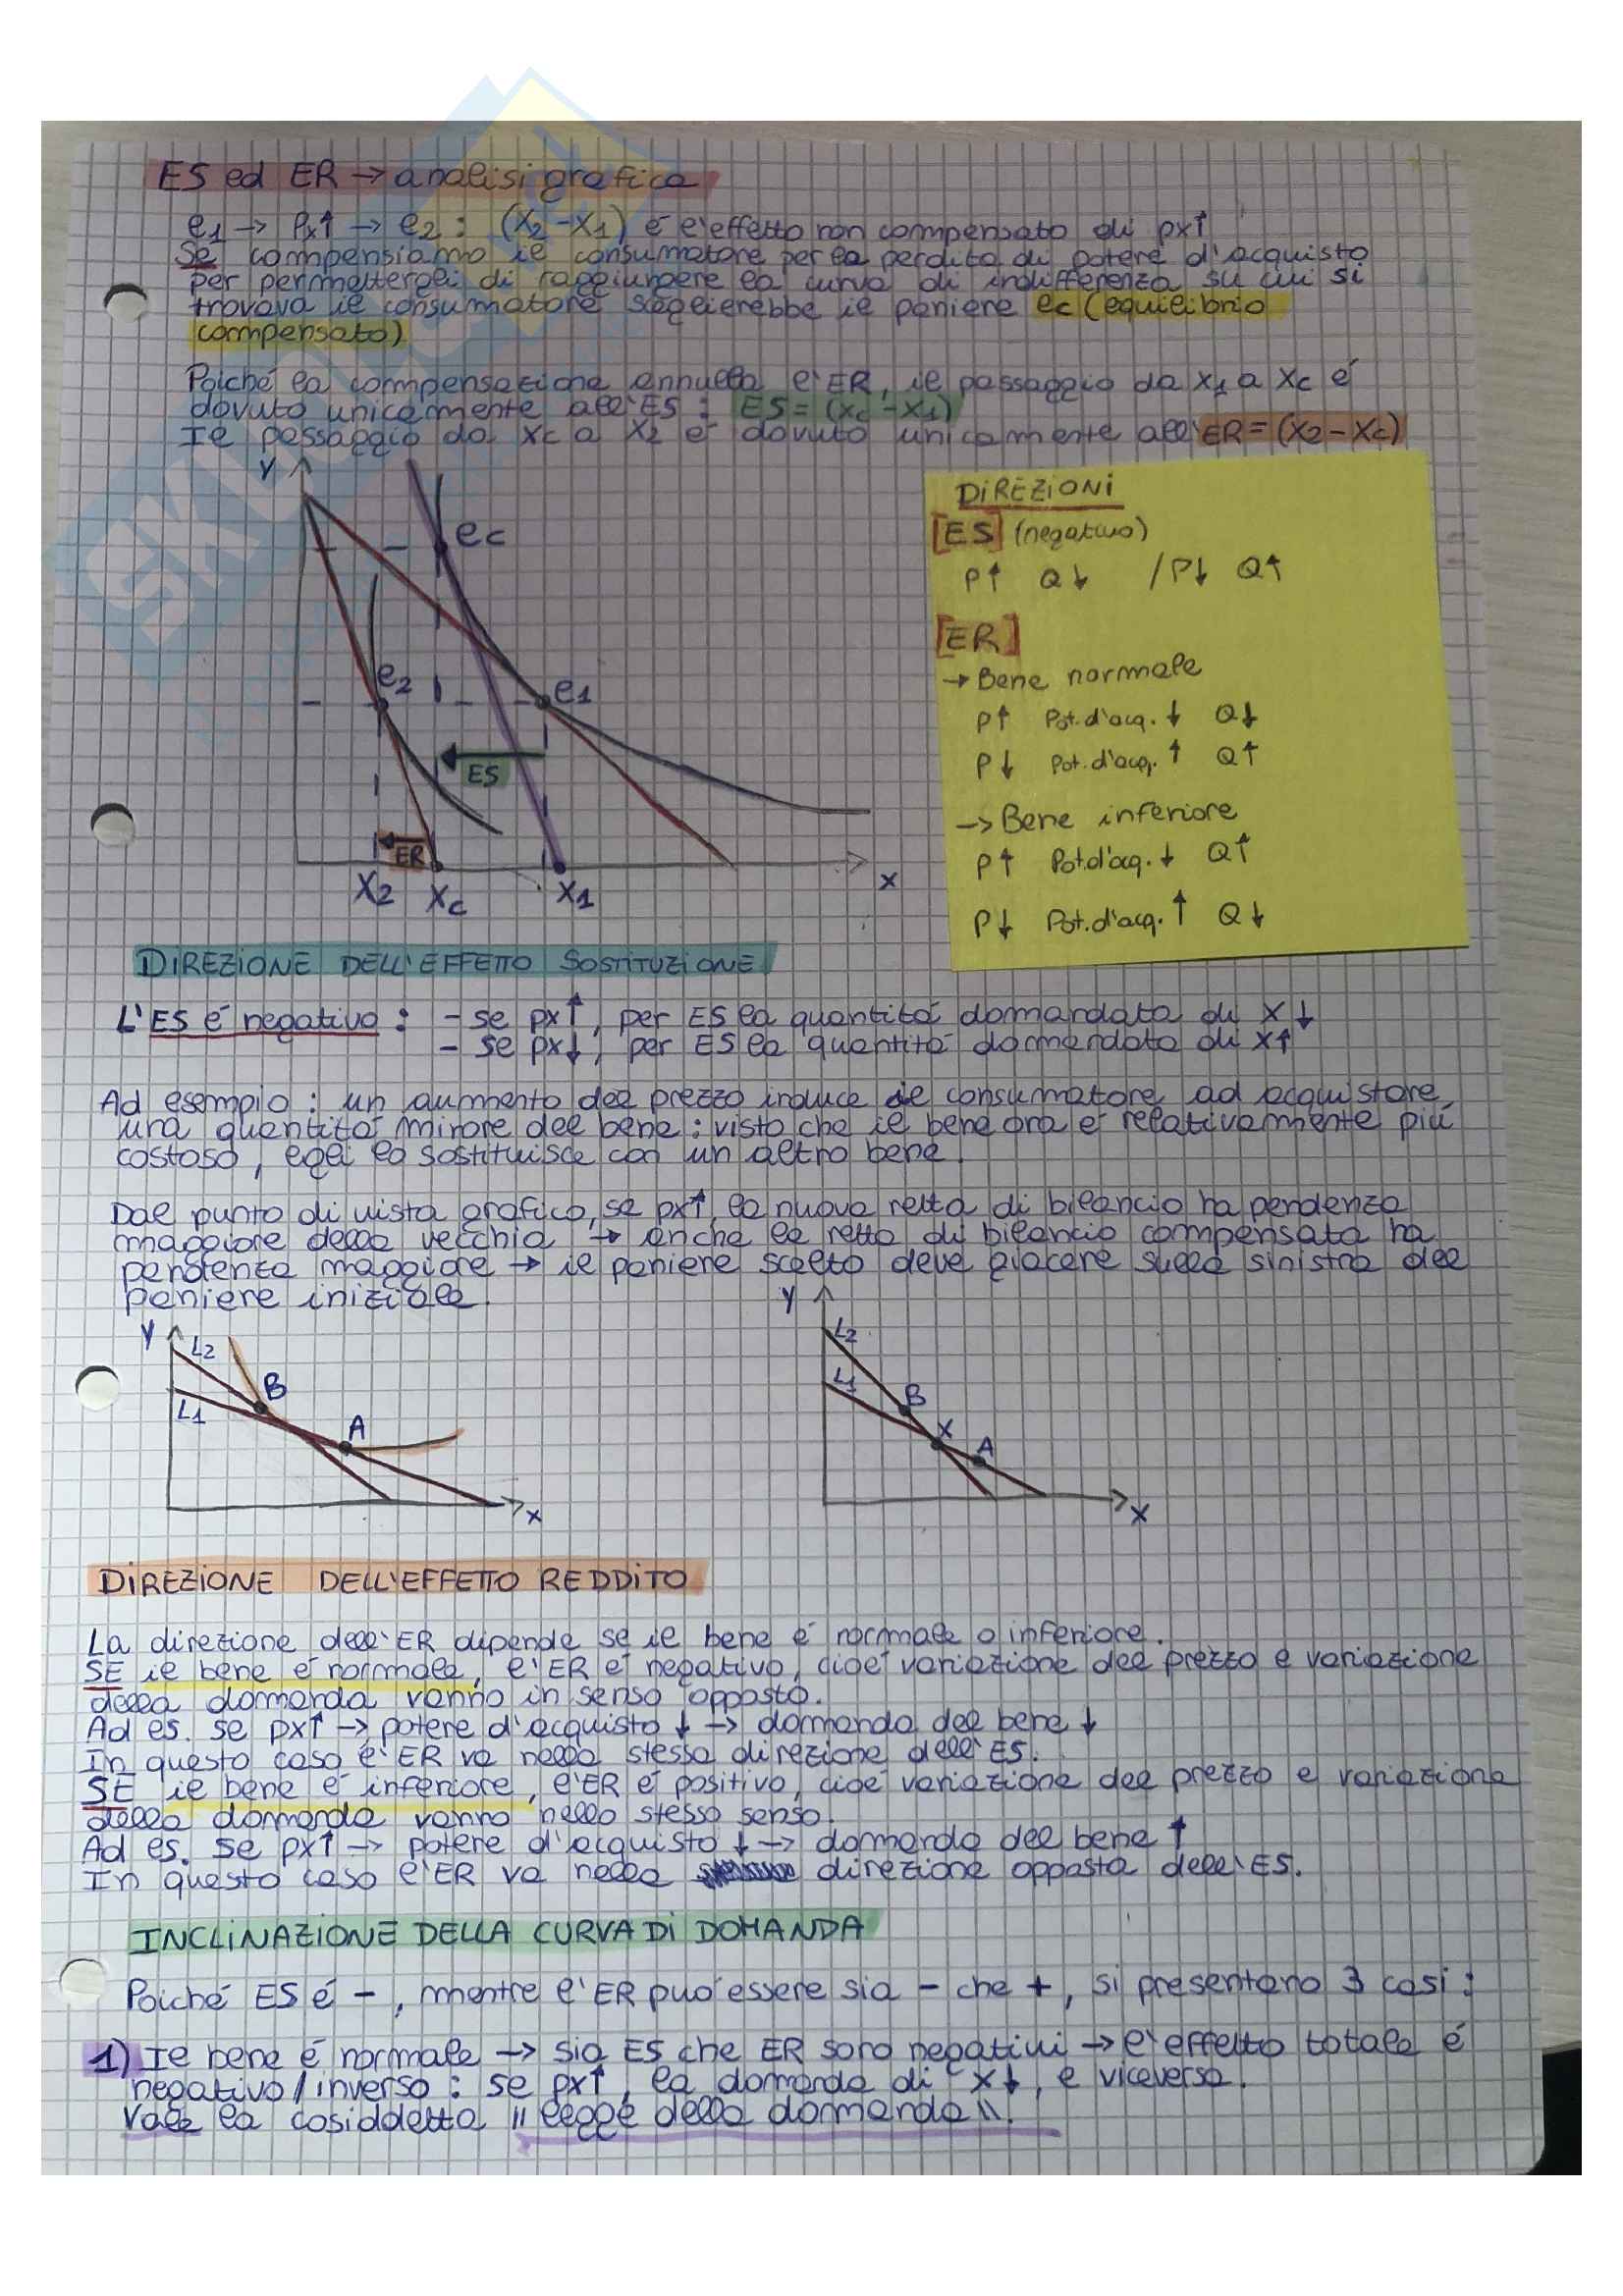 ES ed ER → analisi grafica
e1 → Px↑ → e2 : (X2 - X1) é l'effetto non compensato di px↑
Se compensiamo il consumatore per la perdita di potere d'acquisto
per permettergli di raggiungere la curva di indifferenza su cui si
trovava il consumatore sceglierebbe il paniere ec (equilibrio
compensato)
Poiché la compensazione annulla l'ER, il passaggio da x1 a xc é
dovuto unicamente all'ES : ES = (xc - x1)
Il passaggio da xc a x2 é dovuto unicamente all'ER = (X2 - Xc)
Y
ec
e2
e1
ES
ER
X2 Xc X1 x
DIREZIONI
[ES] (negativo)
P↑ Q↓ / P↓ Q↑
[ER]
→ Bene normale
P↑ Pot. d'acq. ↓ Q↓
P↓ Pot. d'acq. ↑ Q↑
→ Bene inferiore
P↑ Pot. d'acq. ↓ Q↑
P↓ Pot. d'acq. ↑ Q↓
DIREZIONE DELL'EFFETTO SOSTITUZIONE
L'ES é negativo : - se px↑, per ES la quantitá domandata di X↓
- se px↓, per ES la quantitá domandata di X↑
Ad esempio : un aumento del prezzo induce il consumatore ad acquistare
una quantitá minore del bene : visto che il bene ora é relativamente piú
costoso, egli lo sostituisce con un altro bene.
Dal punto di vista grafico, se px↑, la nuova retta di bilancio ha pendenza
maggiore della vecchia → anche la retta di bilancio compensata ha
pendenza maggiore → il paniere scelto deve giacere sulla sinistra del
paniere iniziale.
Y
L2
B
L1
A
x
Y
L2
L1
B
X
A
x
DIREZIONE DELL'EFFETTO REDDITO
La direzione dell'ER dipende se il bene é normale o inferiore.
SE il bene é normale, l'ER é negativo, cioé variazione del prezzo e variazione
della domanda vanno in senso opposto.
Ad es. se px↑ → potere d'acquisto ↓ → domanda del bene ↓
In questo caso l'ER va nella stessa direzione dell'ES.
SE il bene é inferiore, l'ER é positivo, cioé variazione del prezzo e variazione
della domanda vanno nello stesso senso.
Ad es. se px↑ → potere d'acquisto ↓ → domanda del bene ↑
In questo caso l'ER va nella direzione opposta dell'ES.
INCLINAZIONE DELLA CURVA DI DOMANDA
Poiché ES é - , mentre l'ER puó essere sia - che +, si presentano 3 casi :
1) Il bene é normale → sia ES che ER sono negativi → l'effetto totale é
negativo/inverso : se px↑, la domanda di x↓, e viceversa.
Vale la cosiddetta "legge della domanda".